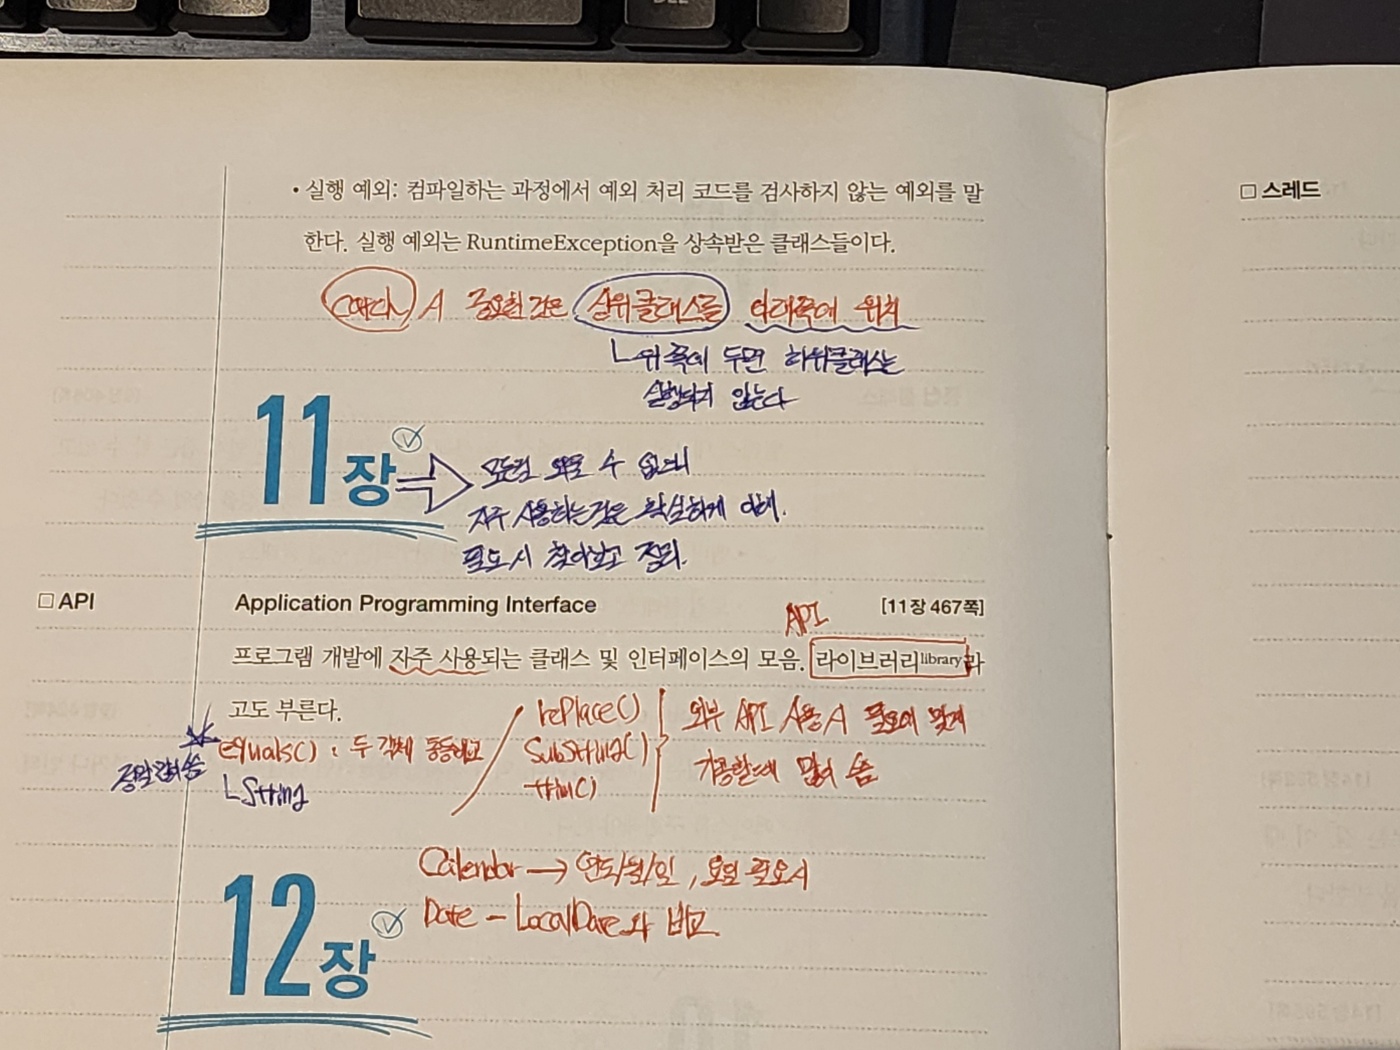 • 실행 예외: 컴파일하는 과정에서 예외 처리 코드를 검사하지 않는 예외를 말
한다. 실행 예외는 RuntimeException을 상속받은 클래스들이다.
catch 시 중요한 것은 상위클래스를 아래쪽에 위치
위쪽에 두면 하위클래스는
실행되지 않는다
11장
모든걸 외울 수 없으니
자주 사용하는 것은 확실하게 이해.
필요시 찾아보고 정리.
□ API
Application Programming Interface [11장 467쪽]
API
프로그램 개발에 자주 사용되는 클래스 및 인터페이스의 모음. 라이브러리library라
고도 부른다.
equals() : 두 객체 동등비교
String
정말 많이 씀
replace()
SubString()
trim()
외부 API 사용시 필요에 맞게
가공할때 많이 씀
Calendar → 연도/월/일, 요일 필요시
Date - LocalDate와 비교
12장
□ 스레드